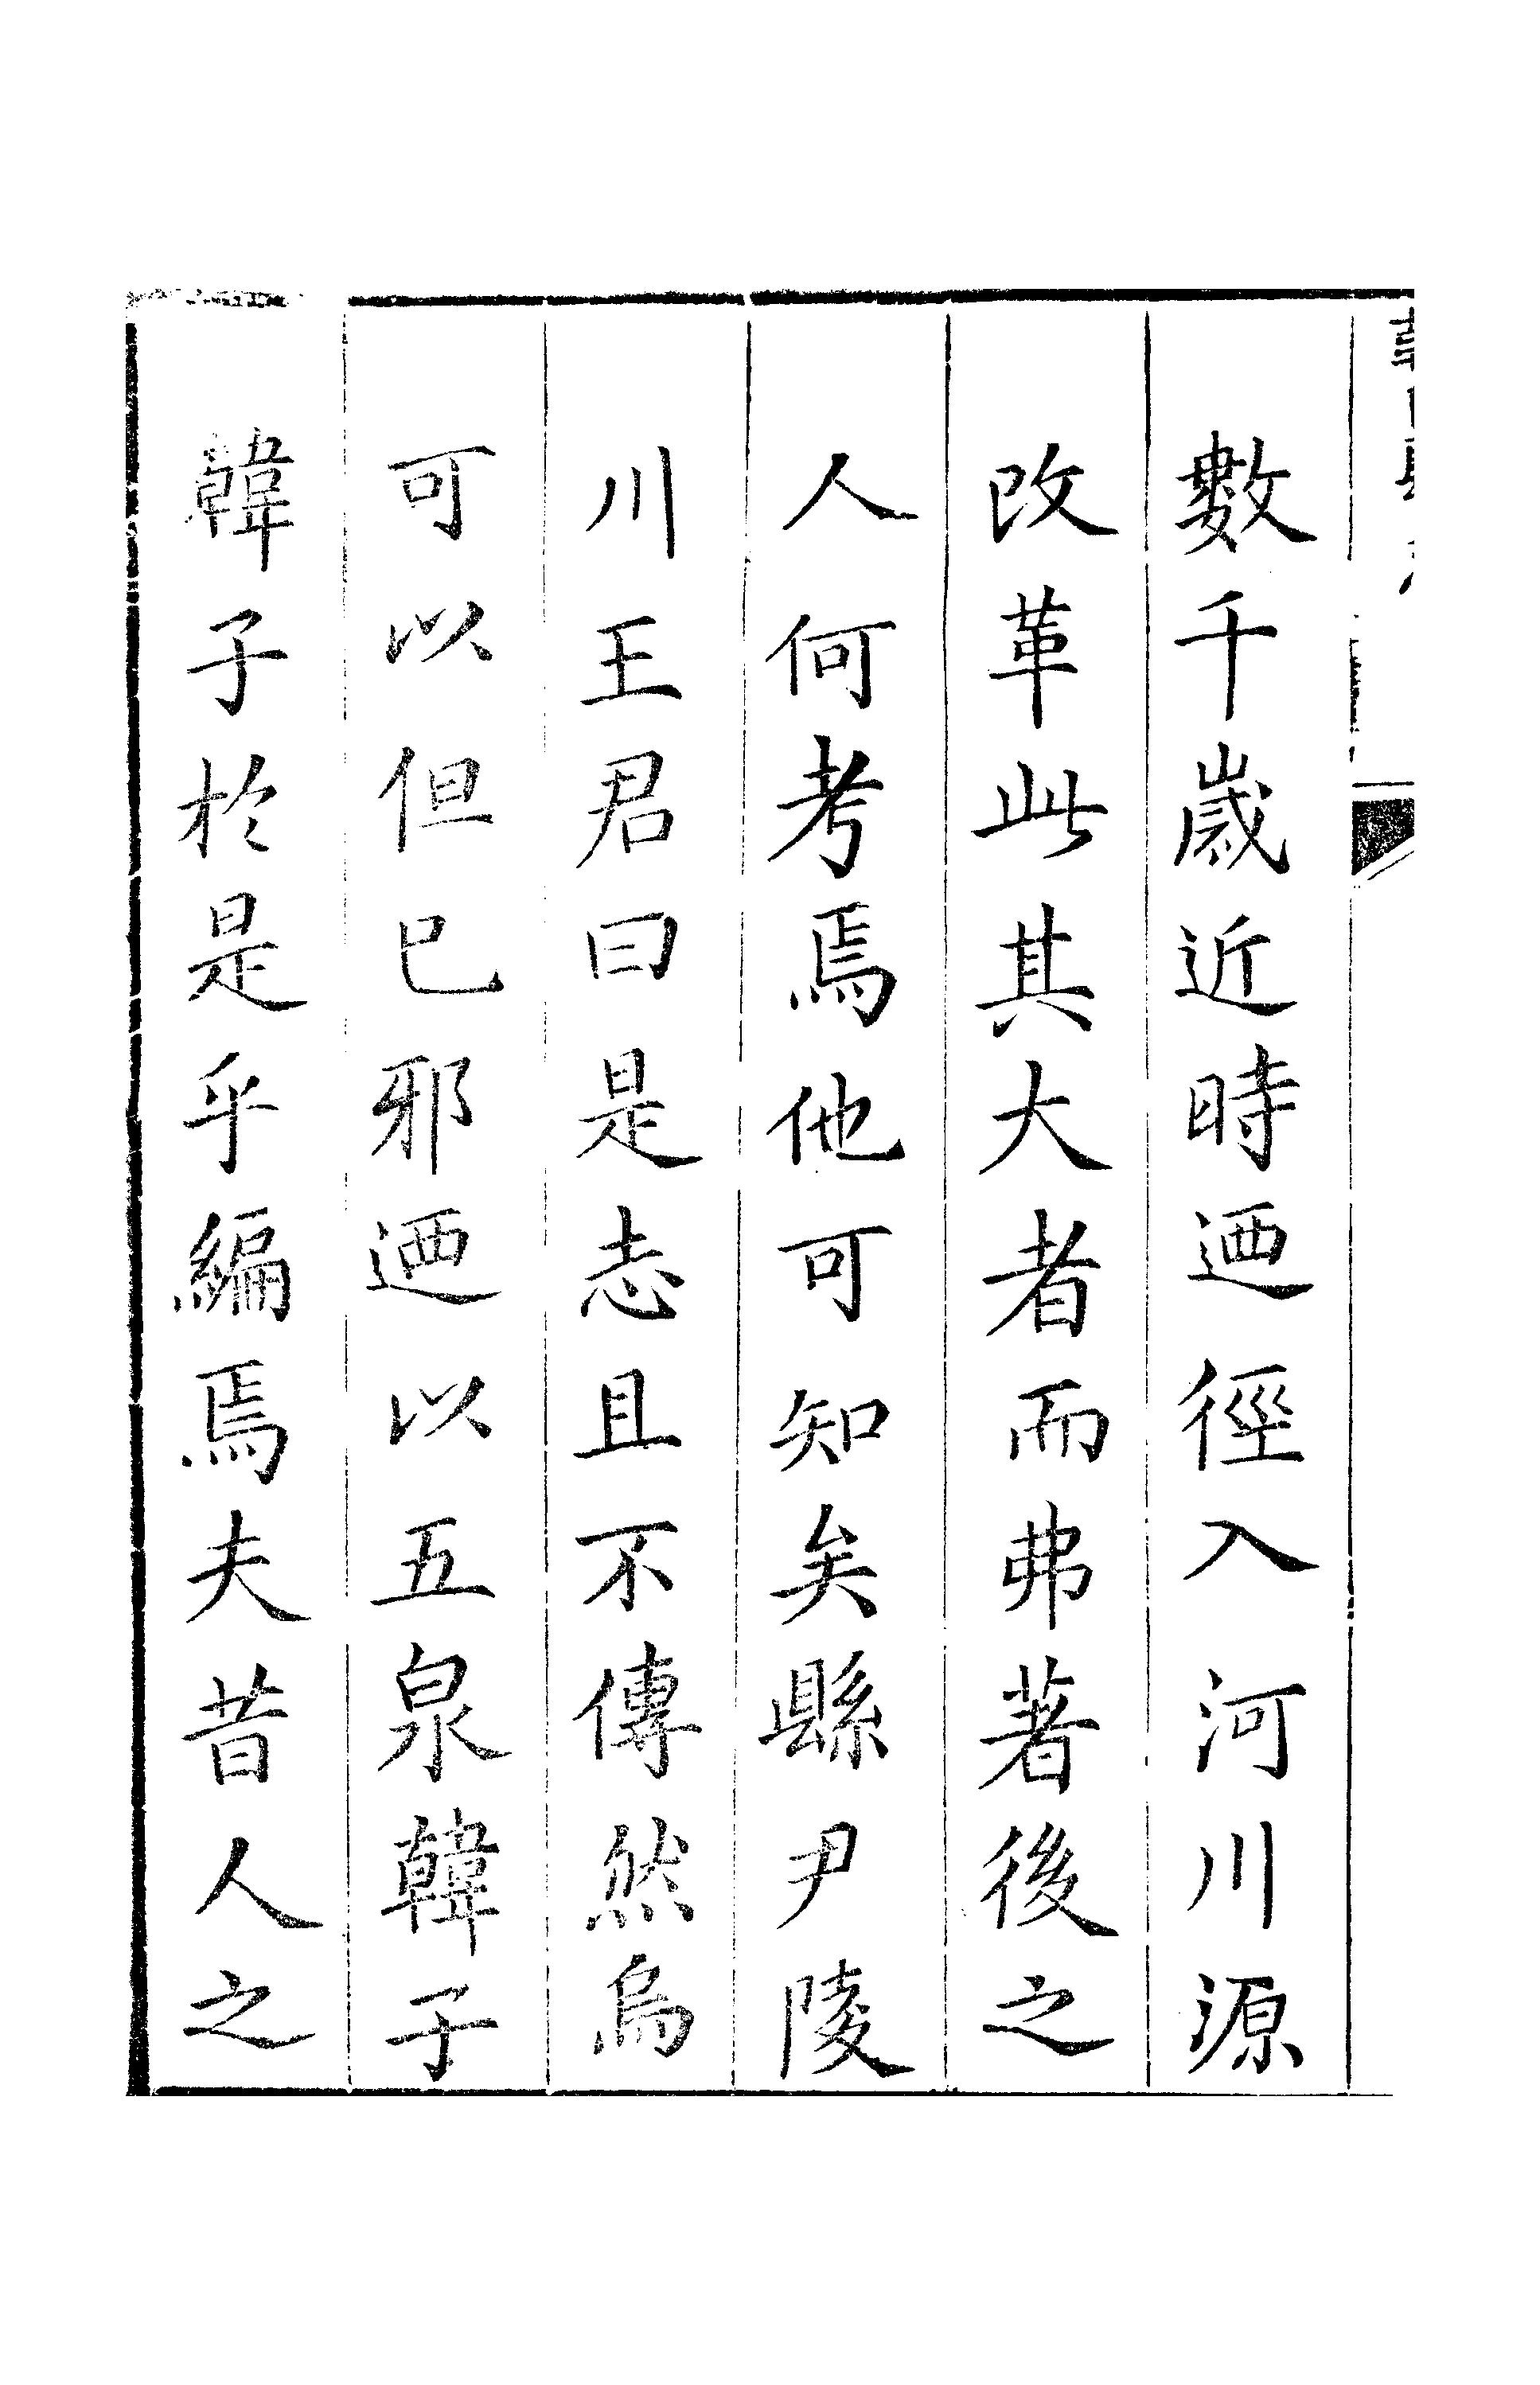 數千歲近時迺徑入河川源
改革此其大者而弗著後之
人何考焉他可知矣縣尹陵
川王君曰是志且不傳然烏
可以但已邪迺以五泉韓子
韓子於是乎編焉夫昔人之